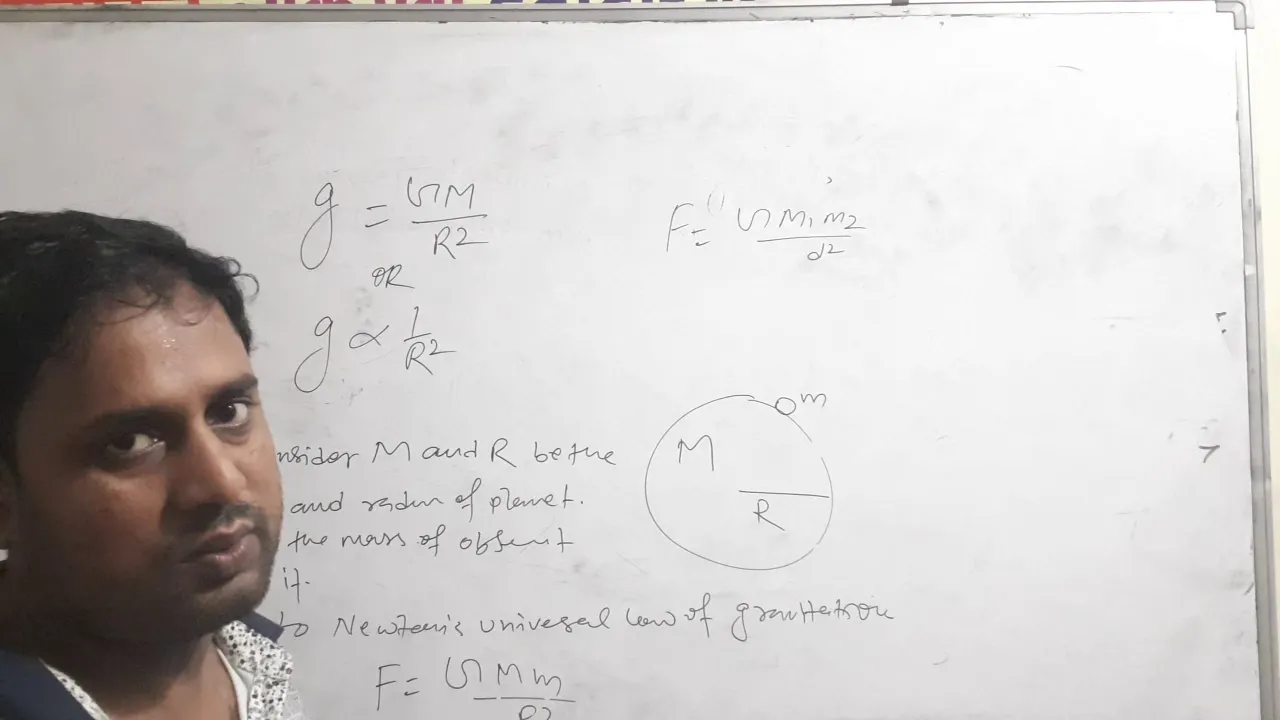 g = GM
R2
OR
g ∝ 1
R2
F = G M1 m2
d2
m
M
R
nsider M and R be the
and radius of planet.
the mass of object
it.
to Newton's universal law of gravitation
F = GMm
R2